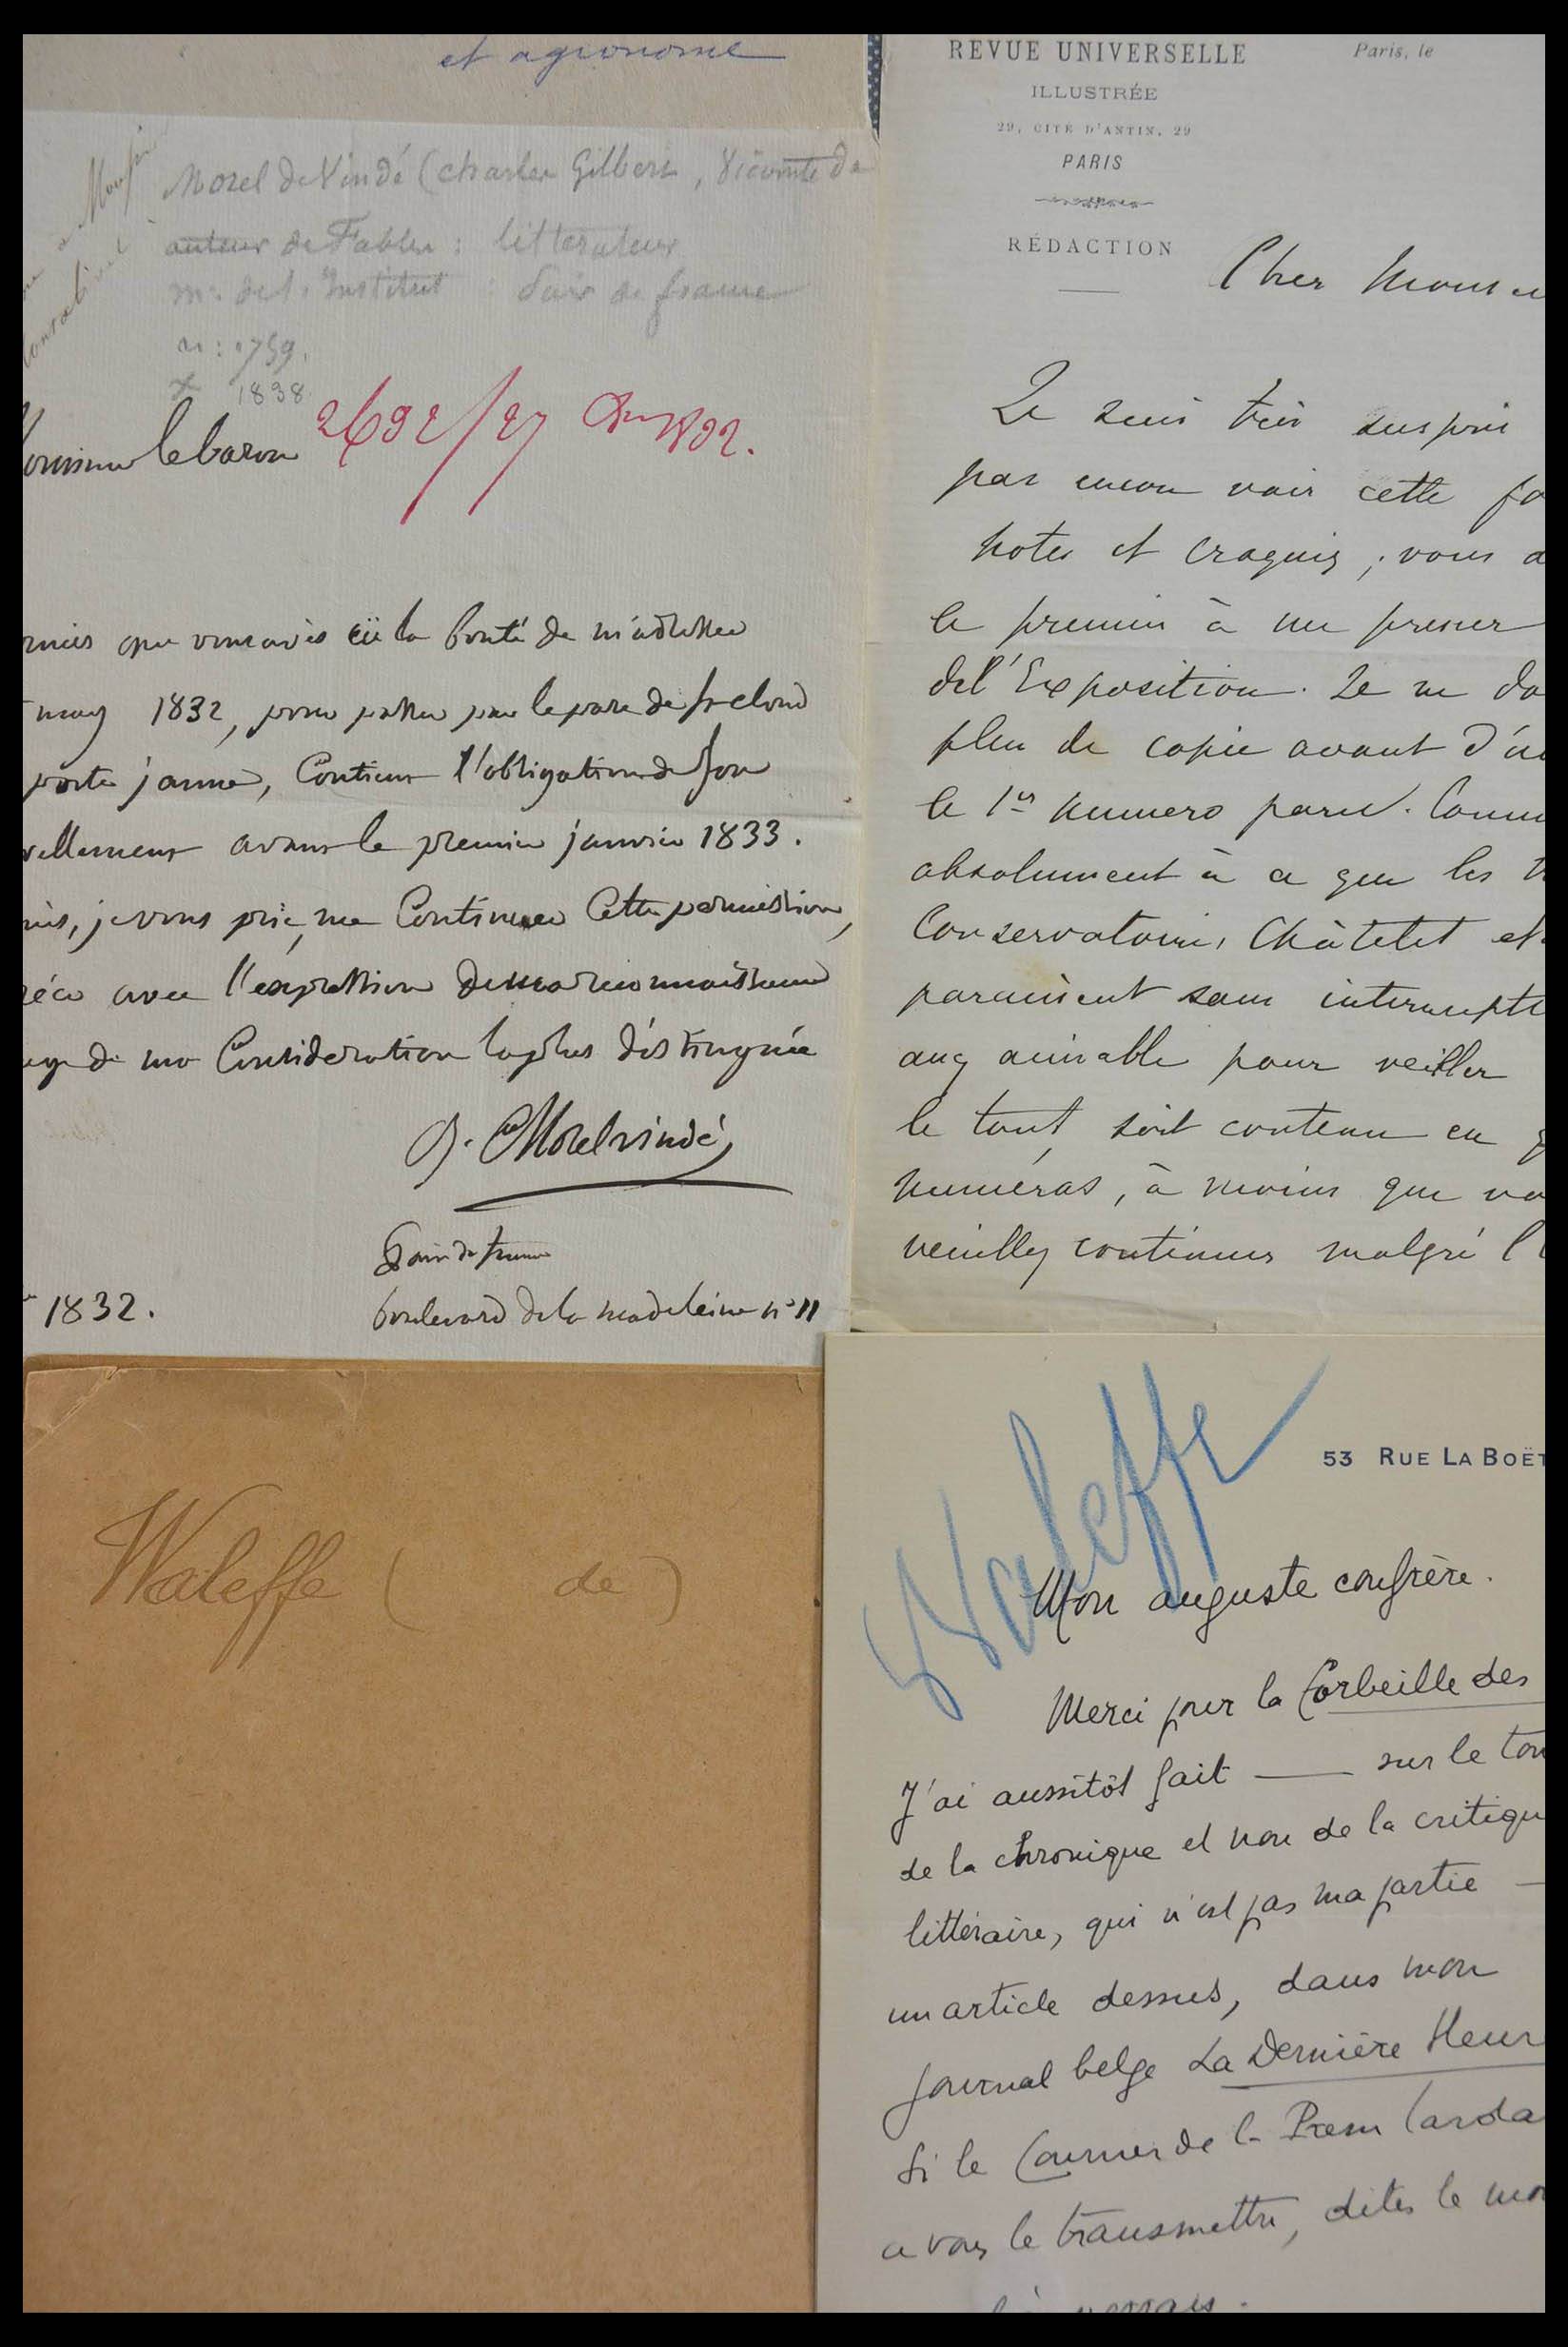 et agronome
Morel de Vindé (Charles Gilbert, Vicomte de
auteur de Fables : litterateur
m. de l'Institut : Pair de france
n : 1759.
1838
lebaron 2692/27 1832.
que vous avés eü la bonté de m'adresser
may 1832, pour passer par le parc de St cloud
porte jaune, Contient l'obligation de son
avant le premier janvier 1833.
je vous prie, me Continuer Cette permission,
avec l'expression de ma reconnaissance
de ma Consideration la plus distinguée
Morelvindé
Pair de france
boulevard de la madeleine n° 11
1832.
REVUE UNIVERSELLE
ILLUSTRÉE
29, CITÉ D'ANTIN, 29
PARIS
RÉDACTION
Paris, le
Cher Monsie
Je suis très surpris
pas encore voir cette
notes et croquis ; vous a
le premier à me presser
del'Exposition. Je ne
plus de copie avant d'
le 1er numero paru. Comm
absolument à ce que les
Conservatoire, Châtelet et
paraissent sans interrupti
aimable pour veiller
le tout soit contenu en
numéros, à moins que vo
veuillez continuer malgré l
Waleffe ( de )
Waleffe
53 RUE LA BOËT
Mon auguste confrère.
Merci pour la Corbeille des
J'ai aussitôt fait — sur le ton
de la chronique et non de la critiqu
littéraire, qui n'est pas ma partie —
un article dessus, dans mon
journal belge La Dernière Heur
Si le Courrier de la Presse tarda
a vous le transmettre, dites le moi